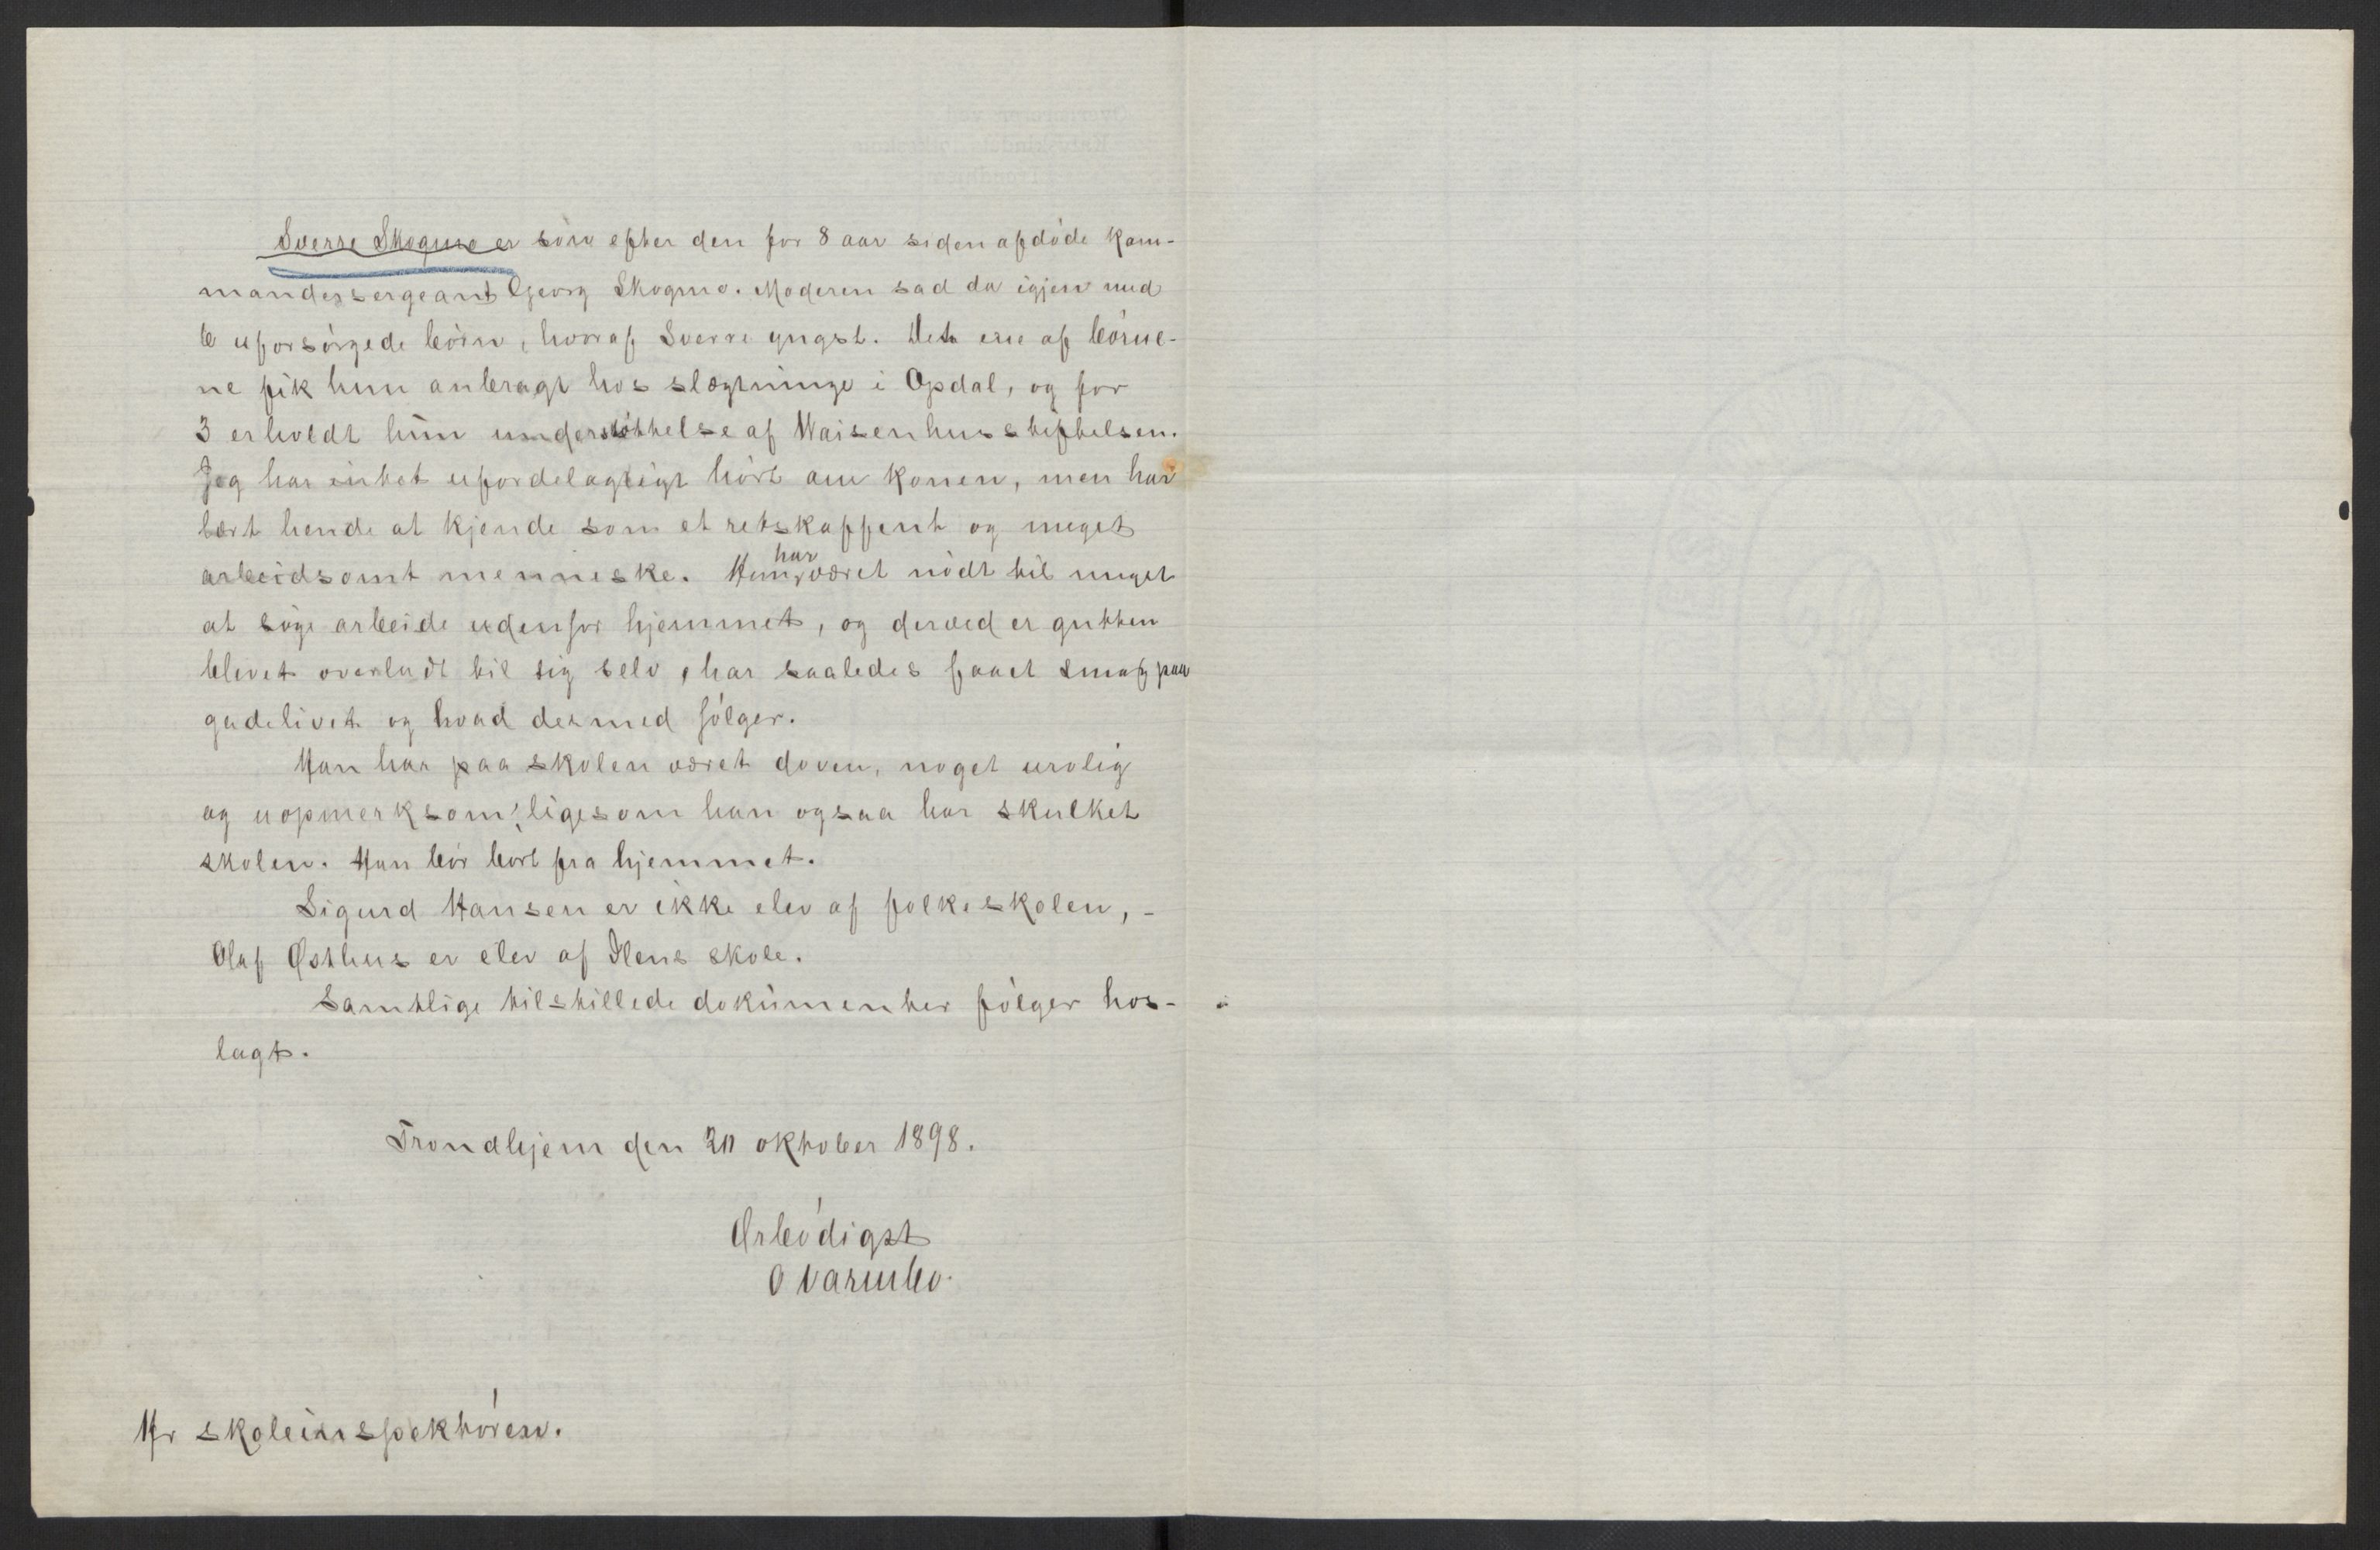 Sverre Skogmo er sön efter den for 8 aar siden afdöde kom-
mandersergeant Georg Skogmo. Moderen sad da igjen med
6 uforsörgede börn, hvoraf Sverre yngst. Det ene af börne-
ne fik hun anbragt hos slægtninge i Opdal, og for
3 erholdt hun understöttelse af Waisenhusstiftelsen.
Jeg har intet ufordelagtigt hört om konen, men har
lært hende at kjende som et retskaffent og meget
arbeidsomt menneske. Hun har været nödt til meget
at söge arbeide udenfor hjemmet, og derved er gutten
blevet overladt til sig selv, har saaledes faaet smag paa
gadelivet og hvad dermed fölger.
Han har paa skolen været doven, noget urolig
og uopmerksom, ligesom han ogsaa har skulket
skolen. Han bör bort fra hjemmet.
Sigurd Hansen er ikke elev af folkeskolen, -
Olaf Østhus er elev af Ilens skole.
Samtlige tilstillede dokumenter fölger hos-
lagt.
Trondhjem den 20 oktober 1898.
Ørbödigst
O Varmbo.
Hr skoleinspektören.